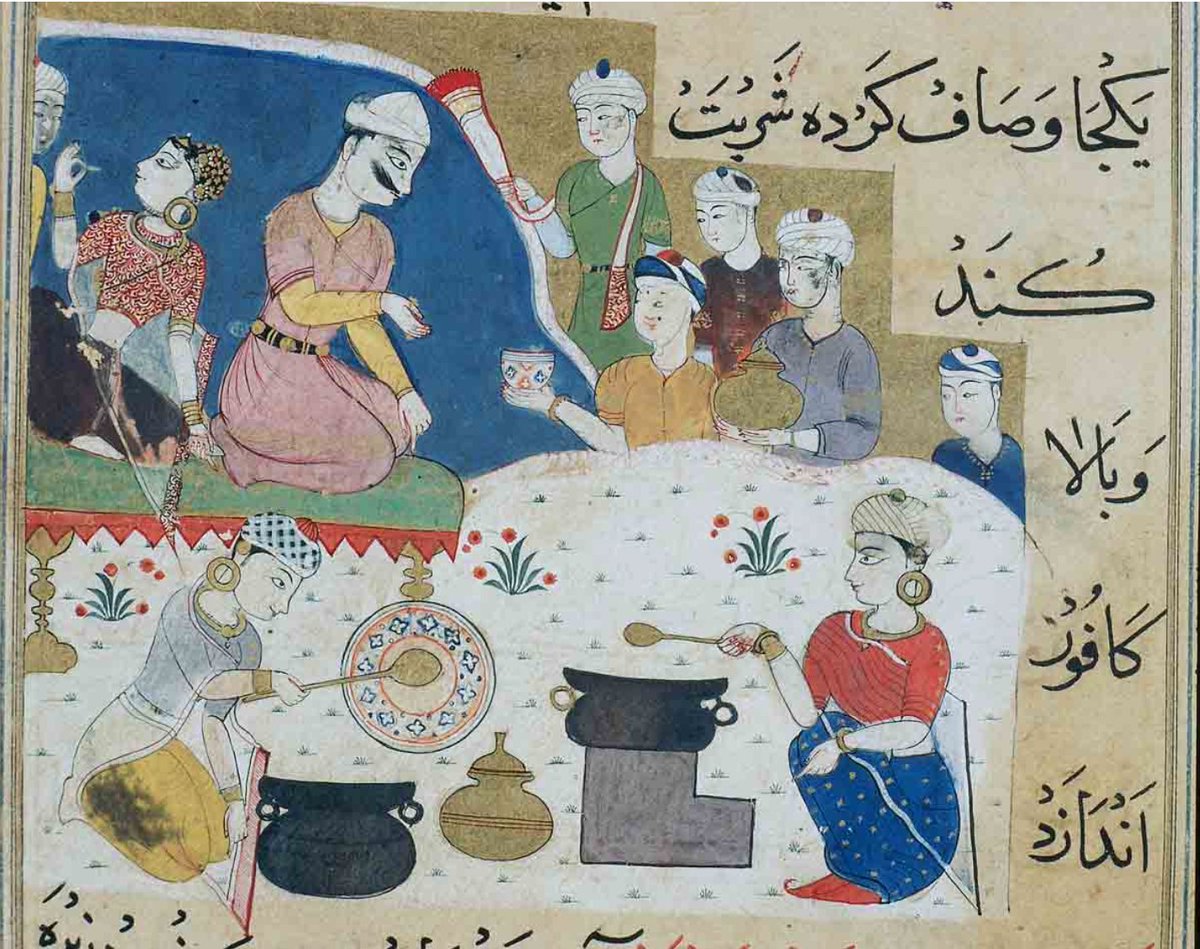 یَکجَا وَصَافْ کَرْدَه شَرْبَتْ
کُنَنَدْ
وَبَالَا
کَافُورْ
اَنْدَازَدْ